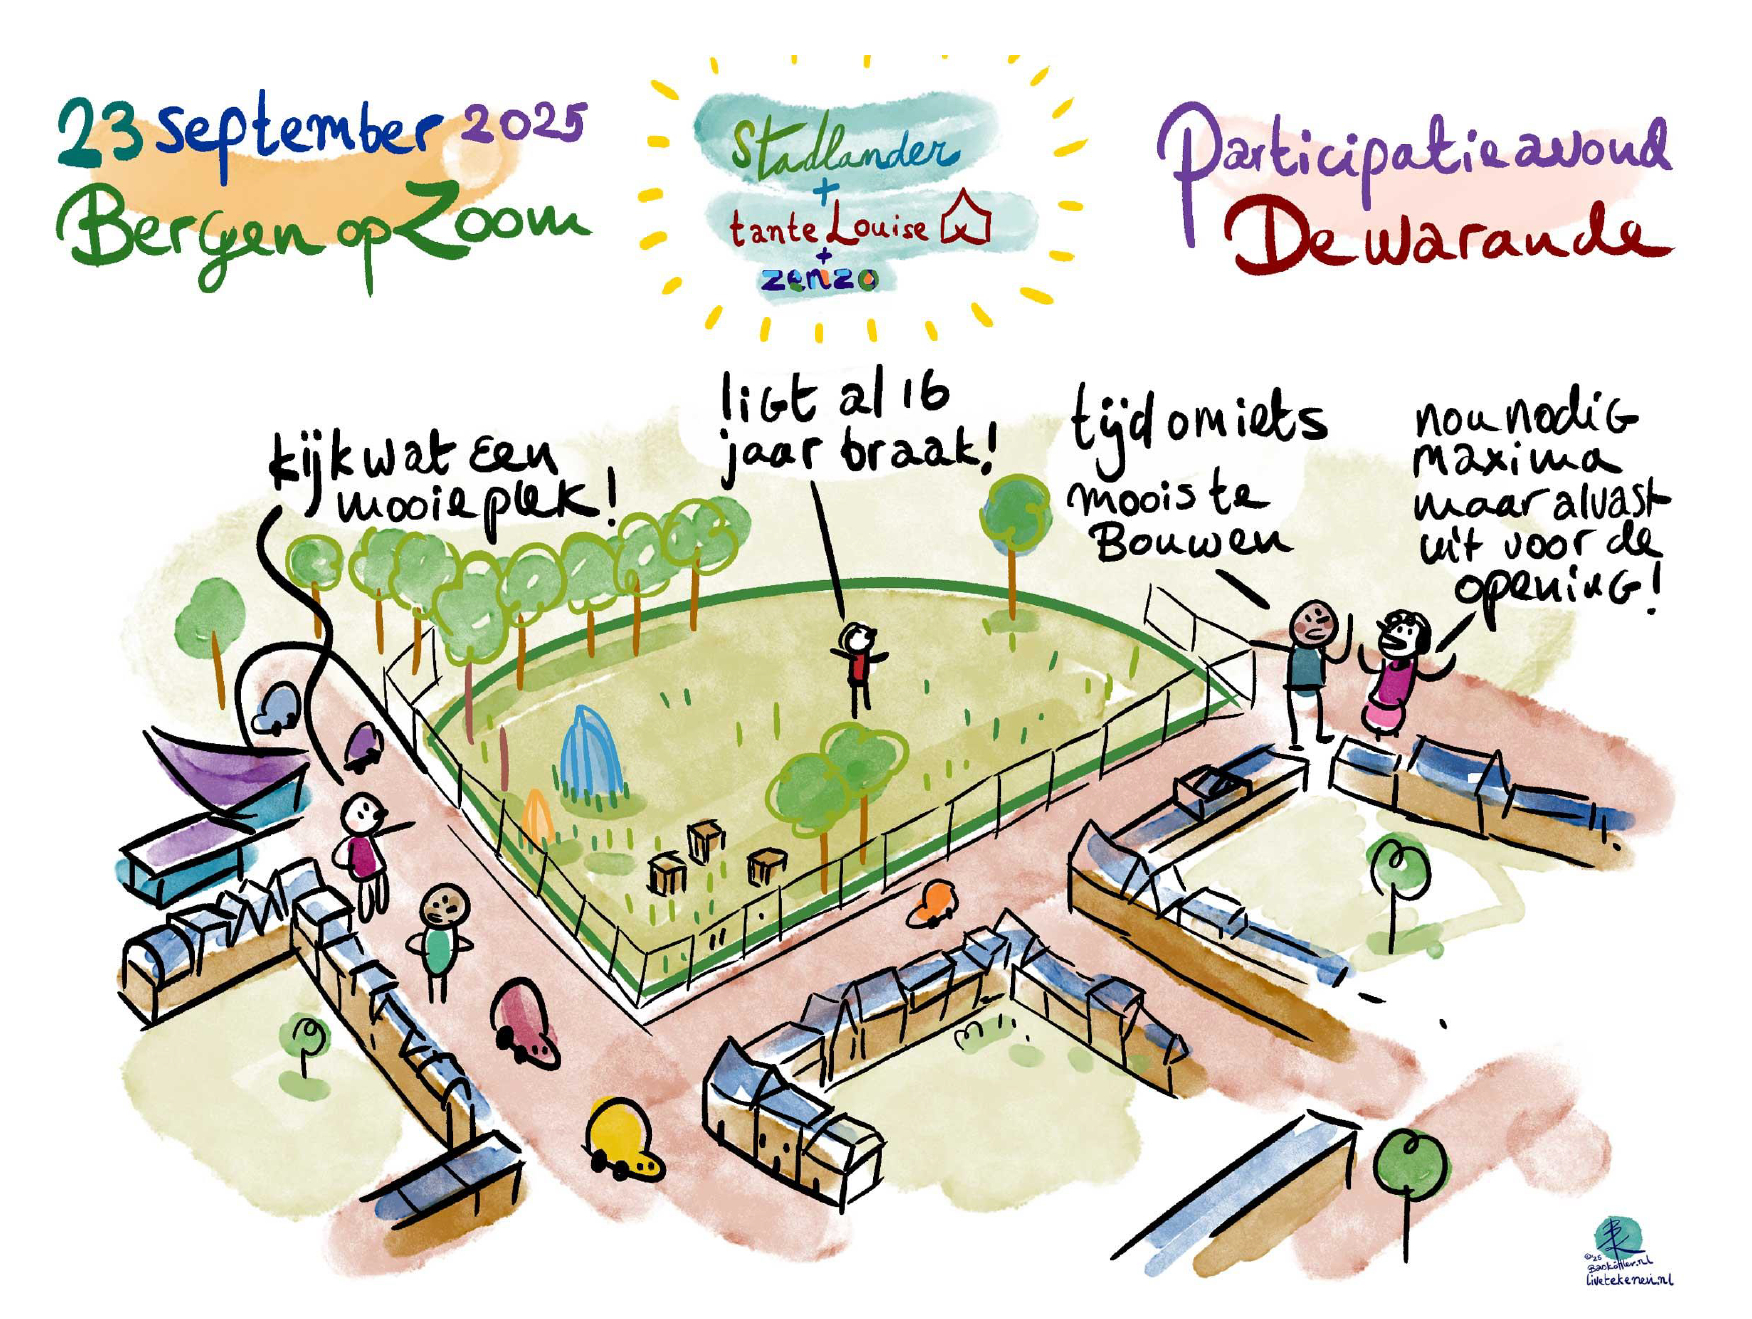 23 september 2025
Bergen op Zoom
Stadlander
+
tante Louise
+
zenzo
Participatieavond
De Warande
kijk wat een
mooie plek!
ligt al 16
jaar braak!
tijd om iets
moois te
Bouwen
nou nodig
maxima
maar alvast
uit voor de
opening!
©'25
Baskohler.nl
livetekenen.nl